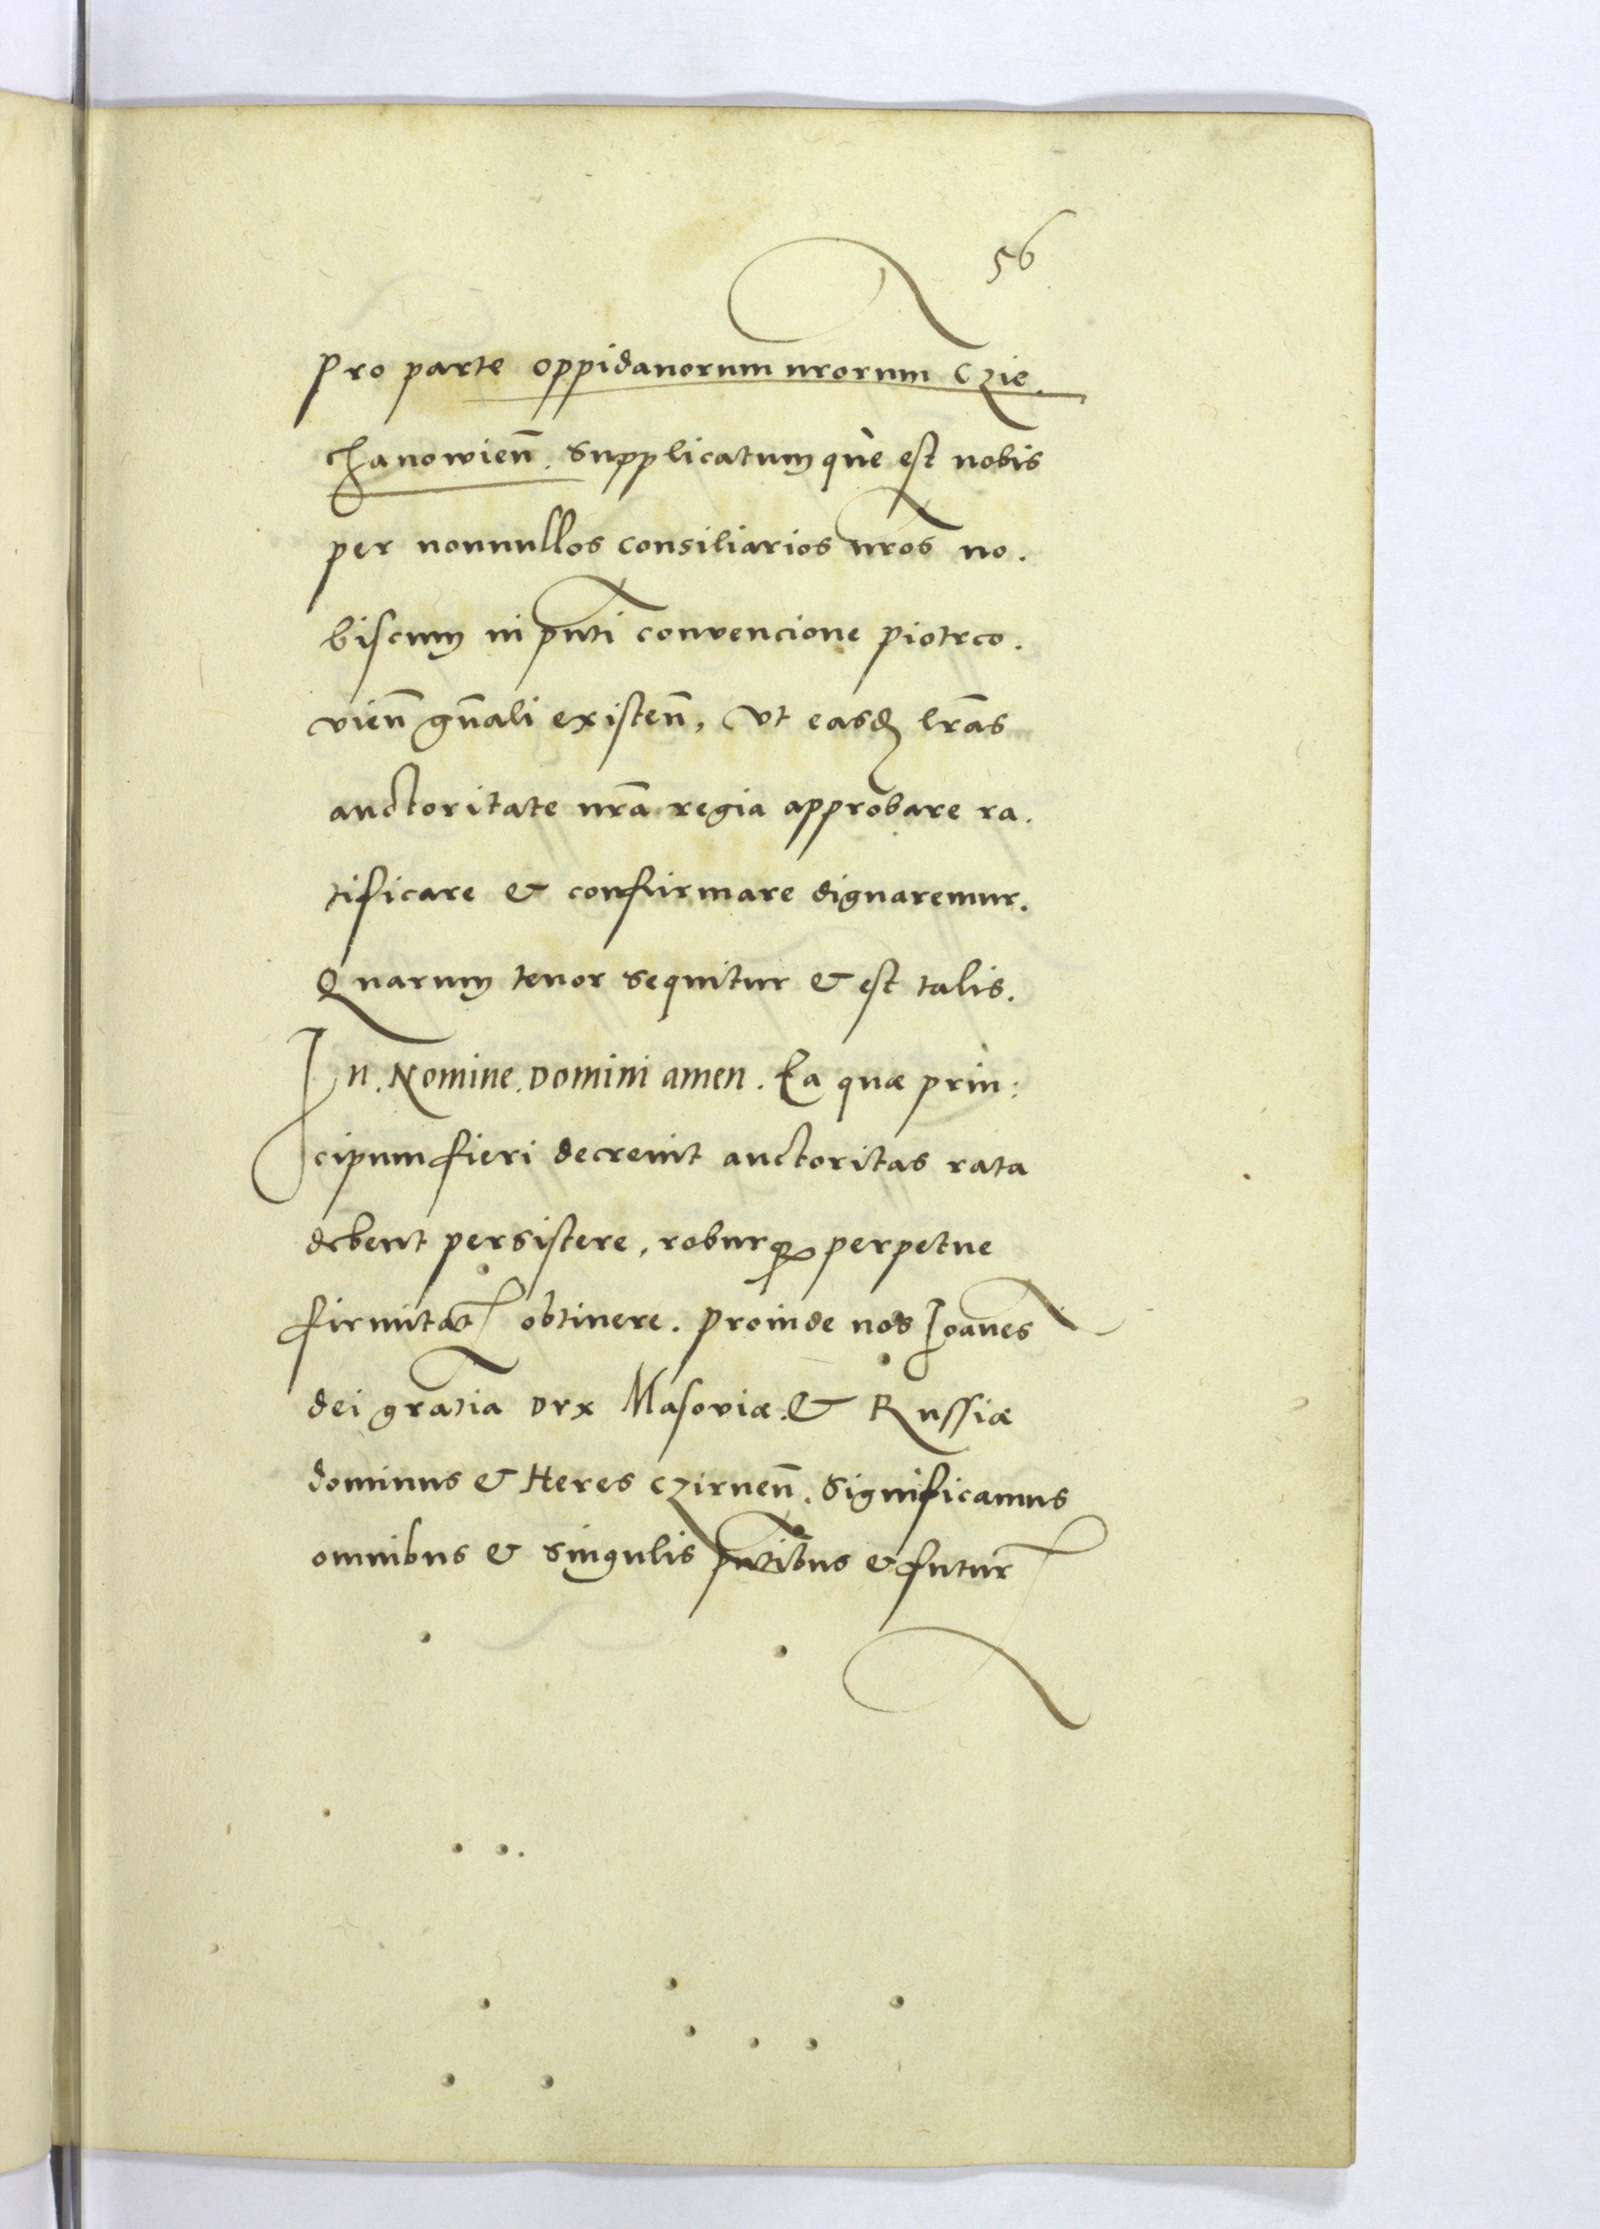 56
Pro parte oppidanorum nrorum Czie.
chanowien̄. supplicatumquè est nobis
per nonnullos consiliarios nr̄os no.
biscum in pn̄ti convencione piotrco.
vien̄ gn̄ali existen̄, Vt easdꝫ lr̄as
auctoritate nr̄a regia approbare ra.
tificare & confirmare dignaremur.
Quarum tenor sequitur & est talis.
In. Nomine. Domini amen. Ea quæ prin:
cipum fieri decreuit auctoritas rata
debent persistere, roburqꝫ perpetue
firmitat̄ obtinere. Proinde nos Joānes
dei gratia Dux Masoviæ. & Russiæ
dominus & Heres Czirnen̄. Significamus
omnibus & singulis pn̄tibus & futur̄